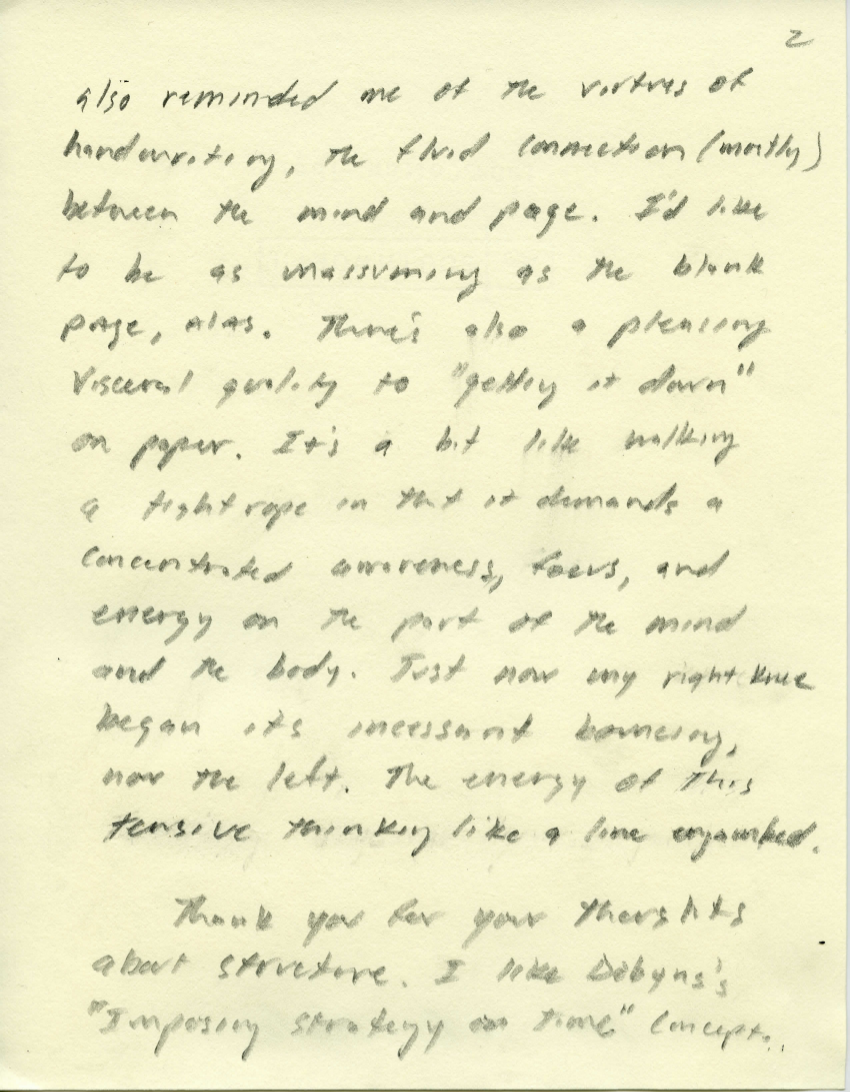 2
also reminded me of the virtues of
handwriting, the fluid connection (mostly)
between the mind and page. I'd like
to be as unassuming as the blank
page, alas. There's also a pleasing
visceral quality to "getting it down"
on paper. It's a bit like walking
a tightrope in that it demands a
concentrated awareness, focus, and
energy on the part of the mind
and the body. Just now my right knee
began its incessant bouncing,
now the left. The energy of this
tensive thinking like a line enjambed.
Thank you for your thoughts
about structure. I like Dobyns's
"Imposing strategy on time" concept.